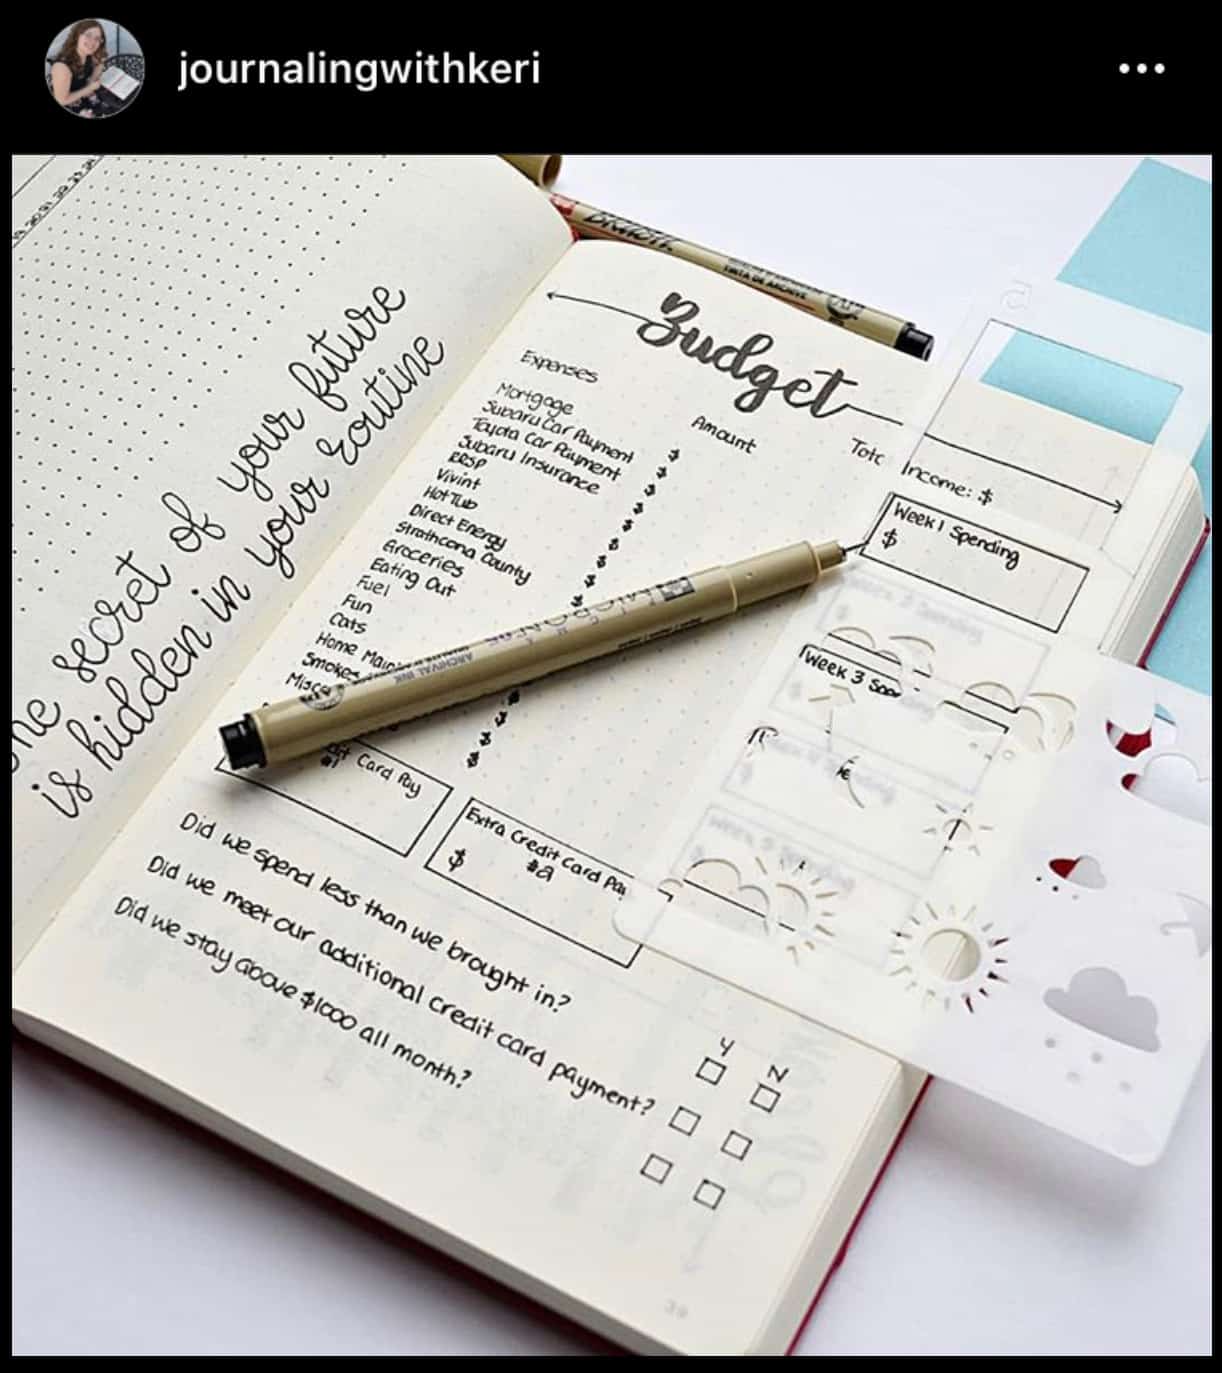 journalingwithkeri
secret of your future
is hidden in your routine
Budget
Expenses
Amount
Income: $
Mortgage $
Subaru Car Payment $
Toyota Car Payment $
Subaru Insurance $
RRSP $
Vivint $
Hot Tub $
Direct Energy $
Strathcona County
Groceries
Eating Out
Fuel
Fun
Cats
Home
Smokes
Week 1 Spending
$
Week 3
Card Pay
#1
Extra Credit Card
$ #2
Did we spend less than we brought in?
Did we meet our additional credit card payment?
Did we stay above $1000 all month?
Y N
MICRON
ARCHIVAL INK
39